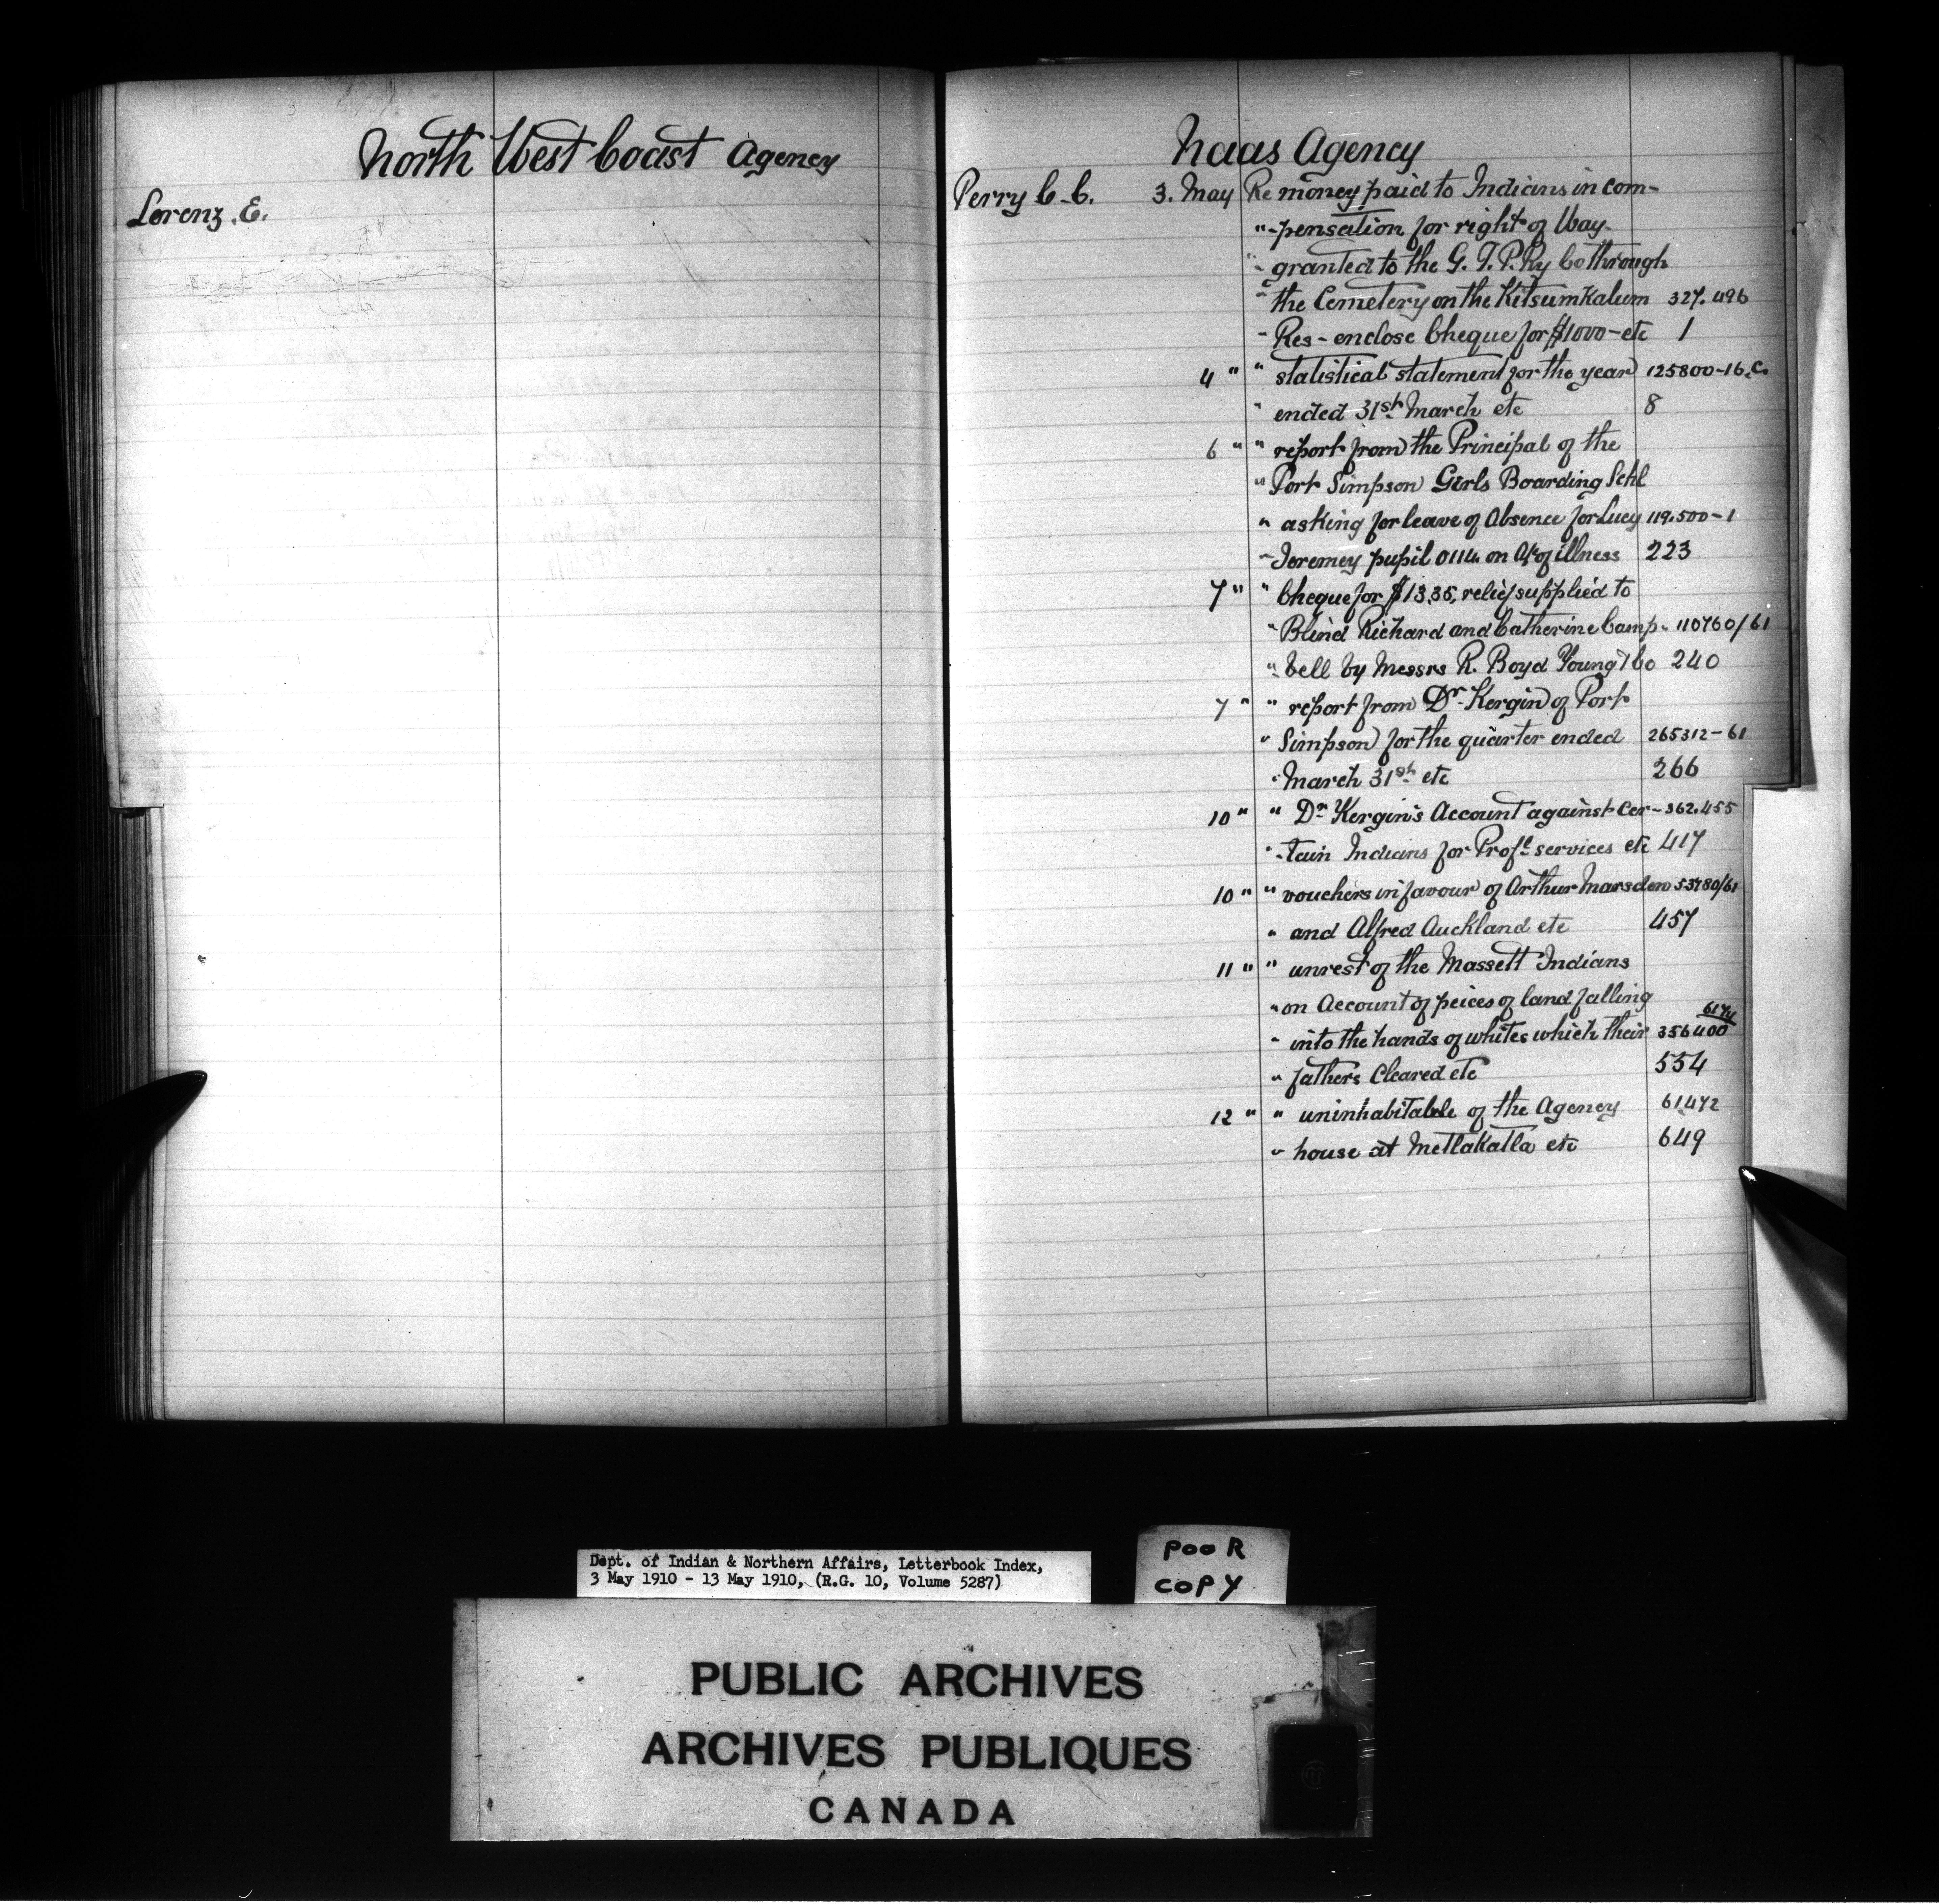 North West Coast Agency
Lorenz. E.
Naas Agency
Perry C. C. 3. May Re money paid to Indians in com-
" -pensation for right of Way-
" granted to the G. T. P. Ry Co through
" the Cemetery on the Kitsumkalum 327.496
" Res - enclose Cheque for $1000 - etc 1
4 " " statistical statement for the year 125800-16.C.
" ended 31st March etc 8
6 " " report from the Principal of the
" Port Simpson Girls Boarding Schl
" asking for leave of Absence for Lucy 119.500-1
" Jeremey pupil 0114 on A/c of illness 223
7 " " Cheque for $13.35, relief supplied to
" Blind Richard and Catherine Camp- 110760/61
" -bell by Messrs R. Boyd Young & Co 240
7 " " report from Dr. Kergin of Port
" Simpson for the quarter ended 265312-61
" March 31st etc 266
10 " " Dr Kergin's Account against Cer- 362.455
" -tain Indians for Profl services etc 417
10 " " vouchers in favour of Arthur Marsden 53780/61
" and Alfred Auckland etc 457
11 " " unrest of the Massett Indians
" on Account of peices of land falling
" into the hands of whites which their 356400 6174
" fathers Cleared etc 554
12 " " uninhabitable of the Agency 61,472
" house at Metlakatla etc 649
Dept. of Indian & Northern Affairs, Letterbook Index,
3 May 1910 - 13 May 1910, (R.G. 10, Volume 5287)
POOR
COPY
PUBLIC ARCHIVES
ARCHIVES PUBLIQUES
CANADA